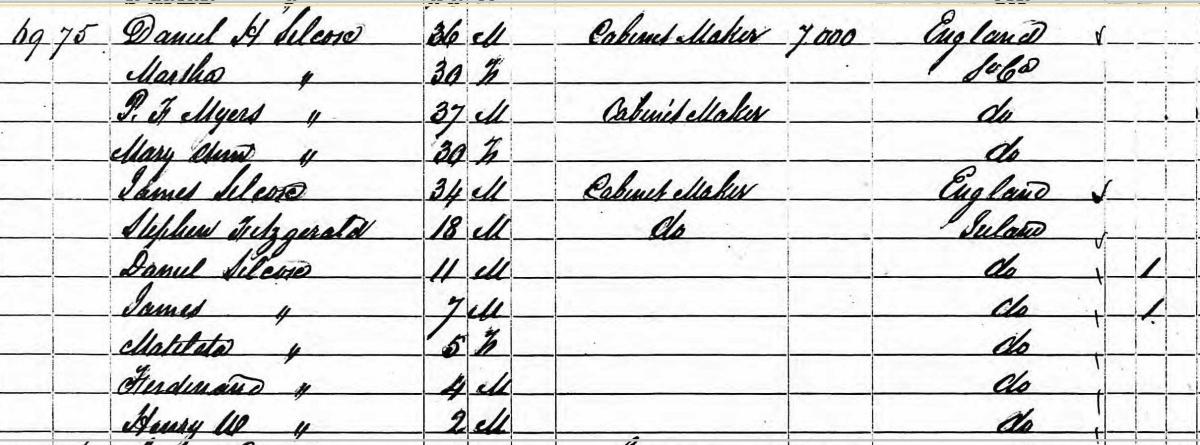 69 75 Daniel H Silcox 36 M Cabinet Maker 7000 England
Martha " 30 F So Ca
P. F Myers " 37 M Cabinet Maker do
Mary Ann " 30 F do
James Silcox 34 M Cabinet Maker England
Stephen Fitzgerald 18 M do Ireland
Daniel Silcox 11 M do 1
James " 7 M do 1
Matilda " 5 F do
Ferdinand " 4 M do
Henry W " 2 M do